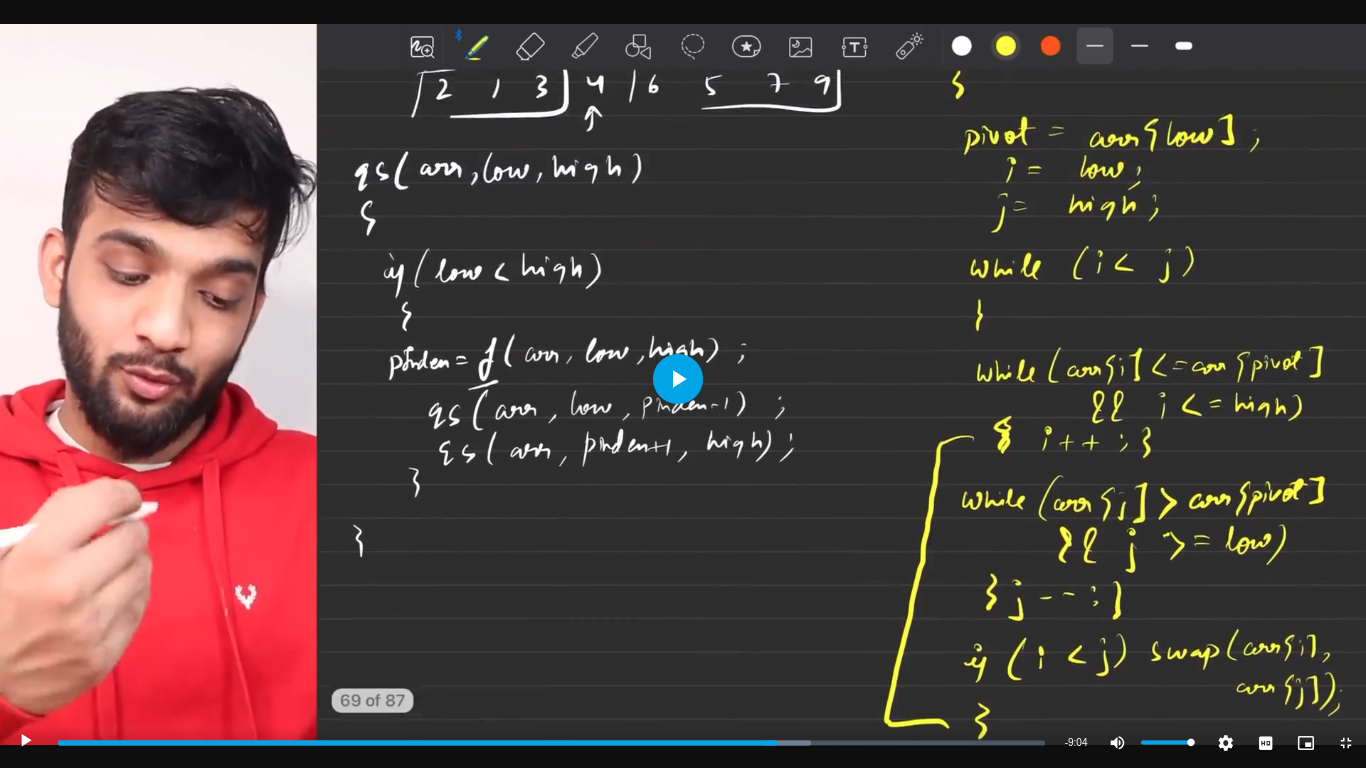 [2 1 3] 4 | 6 5 7 9]
↑
qs(arr, low, high)
{
if (low < high)
{
pIndex = f(arr, low, high);
qs(arr, low, pIndex-1);
qs(arr, pIndex+1, high);
}
}
{
pivot = arr[low];
i = low;
j = high;
while (i < j)
{
while (arr[i] <= arr[pivot]
&& i <= high)
{ i++; }
while (arr[j] > arr[pivot]
&& j >= low)
{ j--; }
if (i < j) swap(arr[i],
arr[j]);
}
T
69 of 87
-9:04
HD